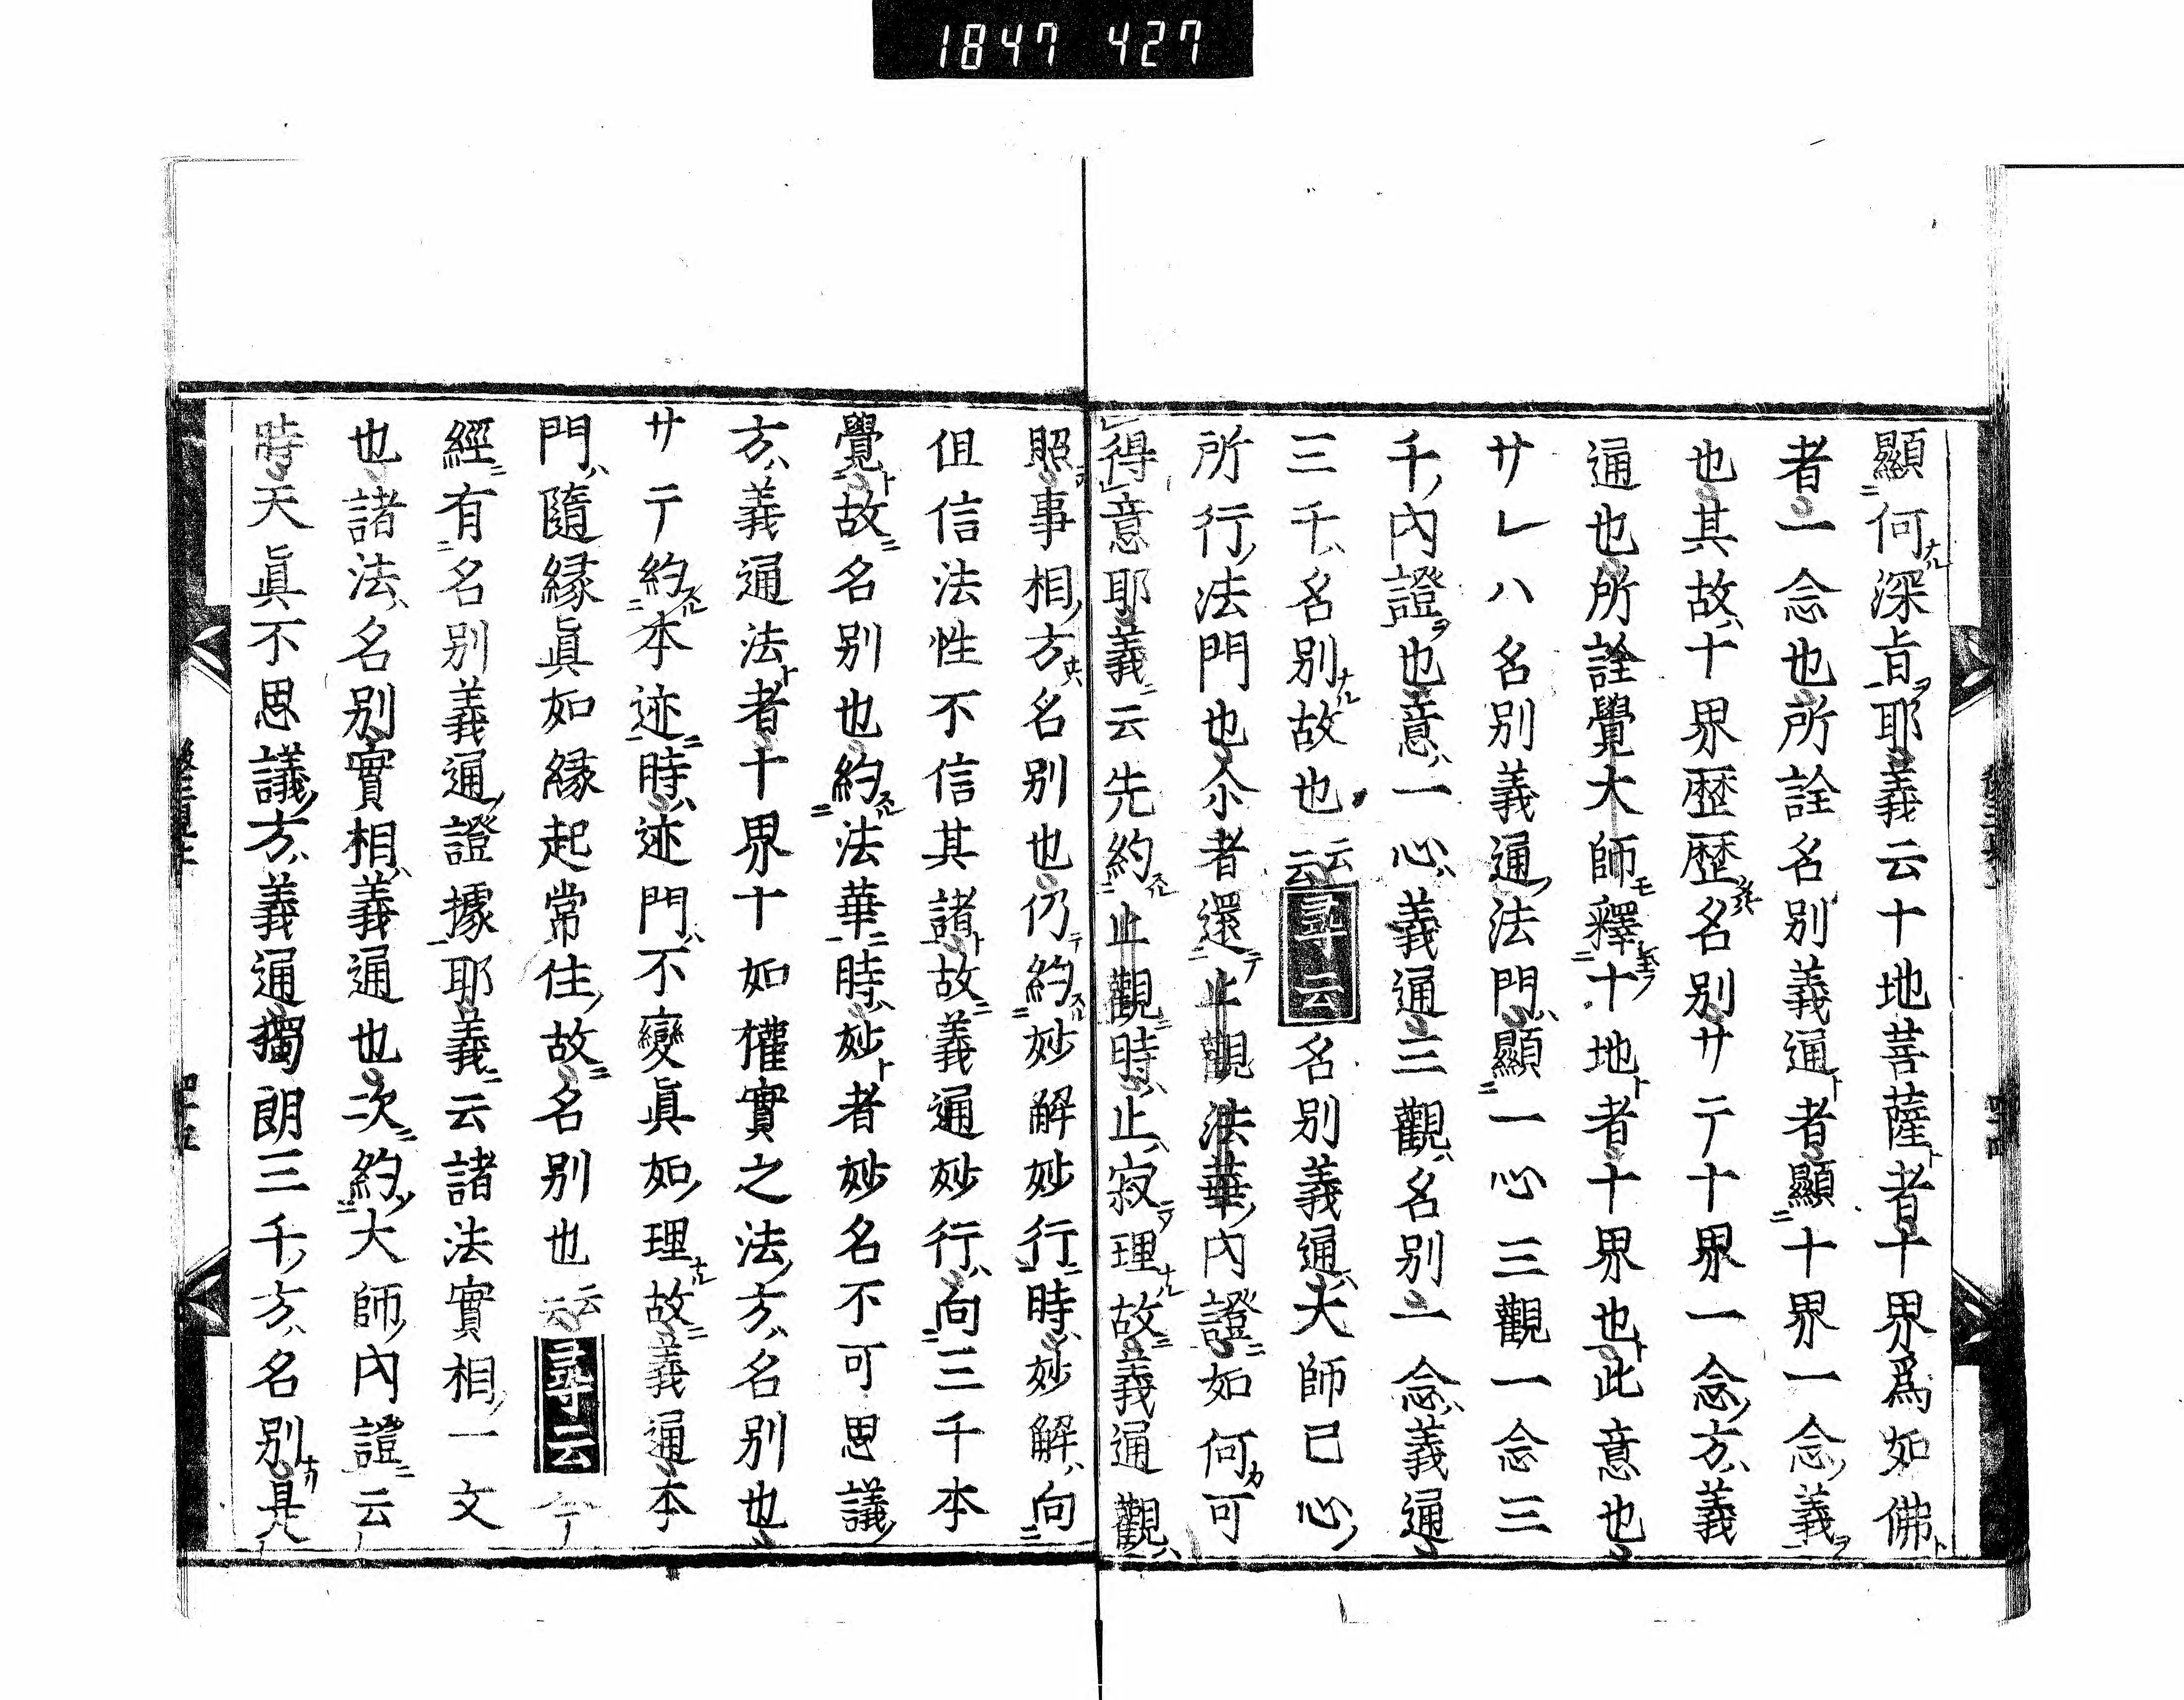 1847 427
顯何深旨耶義云十地菩薩者十界爲如佛
者一念也所詮名別義通者顯十界一念義
也其故十界歴歴名別サテ十界一念方義
通也所詮覺大師釋十地者十界也此意也
サレハ名別義通法門顯一心三觀一念三
千内證也意一心義通三觀名別一念義通
三千名別故也云云尋云名別義通大師己心
所行法門也尒者還止觀法華内證如何可
得意耶義云先約止觀時止寂理故義通觀
照事相方名別也仍約妙解妙行時妙解向
伹信法性不信其諸故義通妙行向三千本
覺故名別也約法華時妙者妙名不可思議
方義通法者十界十如權實之法方名別也
サテ約本迹時迹門不變眞如理故義通本
門隨縁眞如縁起常住故名別也云云尋云今
經有名別義通證據耶義云諸法實相一文
也諸法名別實相義通也次約大師内證云
時天眞不思議方義通獨朗三千方名別是